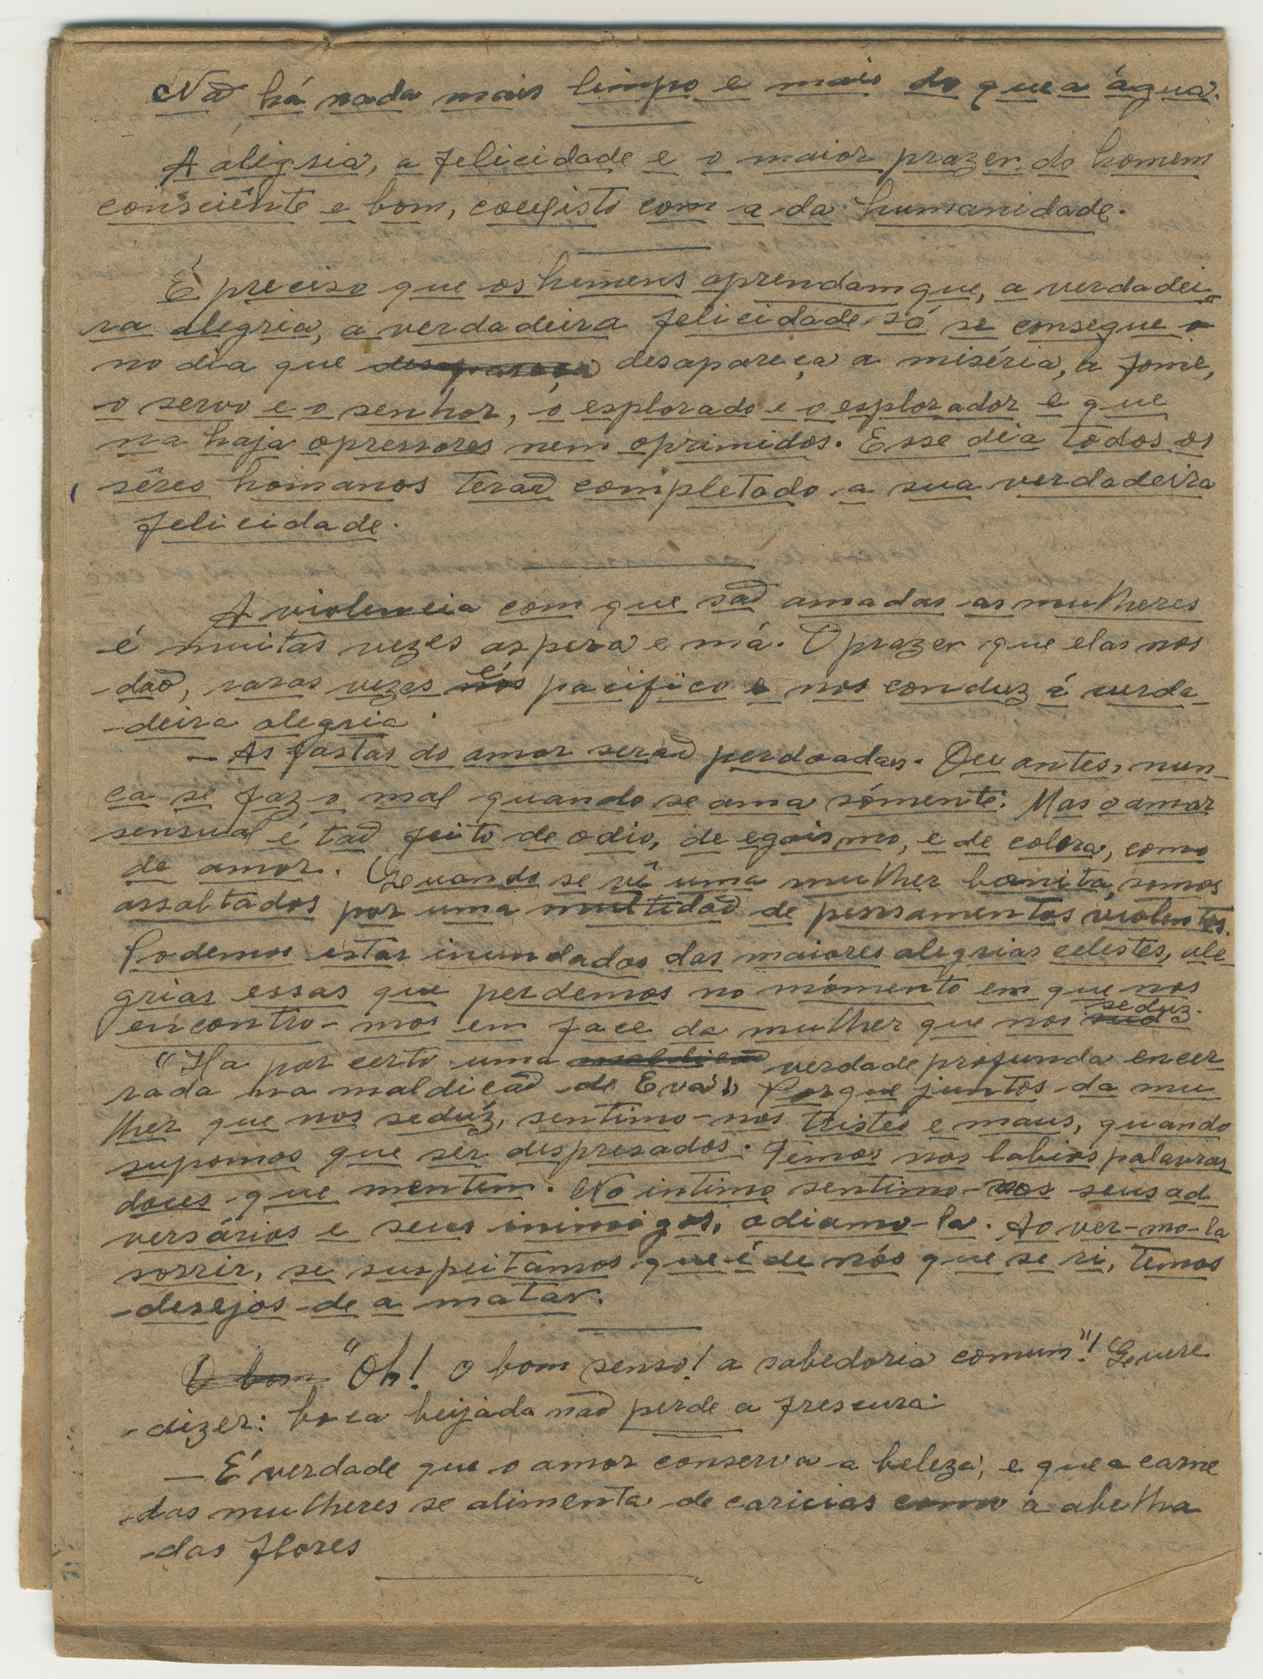 Não há nada mais limpo e mais do que a água.
A aligsia, a felicidade e o maior prazer do homem
consciênte e bom, coexisti com a da humanidade.
É preciso que os homens aprendam que, a verdadei
ra alegria, a verdadeira felicidade só se consegue
no dia que desapareça a miséria, a fome,
o servo e o senhor, o esplorado e o esplorador e que
na haja opressores nem oprimidos. Esse dia todos os
sêres homanos terão completado a sua verdadeira
felicidade.
A violencia com que são amadas as mulheres
é muitas vezes aspera e má. O prazer que elas nos
dão, raras vezes és pacifico e nos conduz á verda-
deira alegria.
— As fastas do amor serão perdoadas. Ou antes, nun-
ca se faz o mal quando se ama sómente. Mas o amor
sensual é tão feito de odio, de egoismo, e de colera, como
de amor. Quando se vê uma mulher bonita, somos
assaltados por uma multidão de pensamentos violentos.
Podemos estar inundados das maiores alegrias celestes, ale-
grias essas que perdemos no mómento em que nos
encontro-mos em face da mulher que nos seduz.
"Ha por certo uma verdade profunda encer
rada na maldição de Eva", Porque juntos da mu
lher que nos seduz, sentimo-nos tristes e maus, quando
supomos que ser despresados. Temos nos labios palavras
doces que mentem. No intimo sentimo-nos seus ad
versários e seus inimigos, odiamo-la. Ao ver-mo-la
sorrir, se suspeitamos que é de nós que se ri, temos
desejos de a matar.
O bom "Oh! O bom senso! a sabedoria comum"! Quere
dizer: boca beijada não perde a frescura.
— É verdade que o amor conserva a beleza, e que a carne
das mulheres se alimenta de caricias como a abelha
das flores